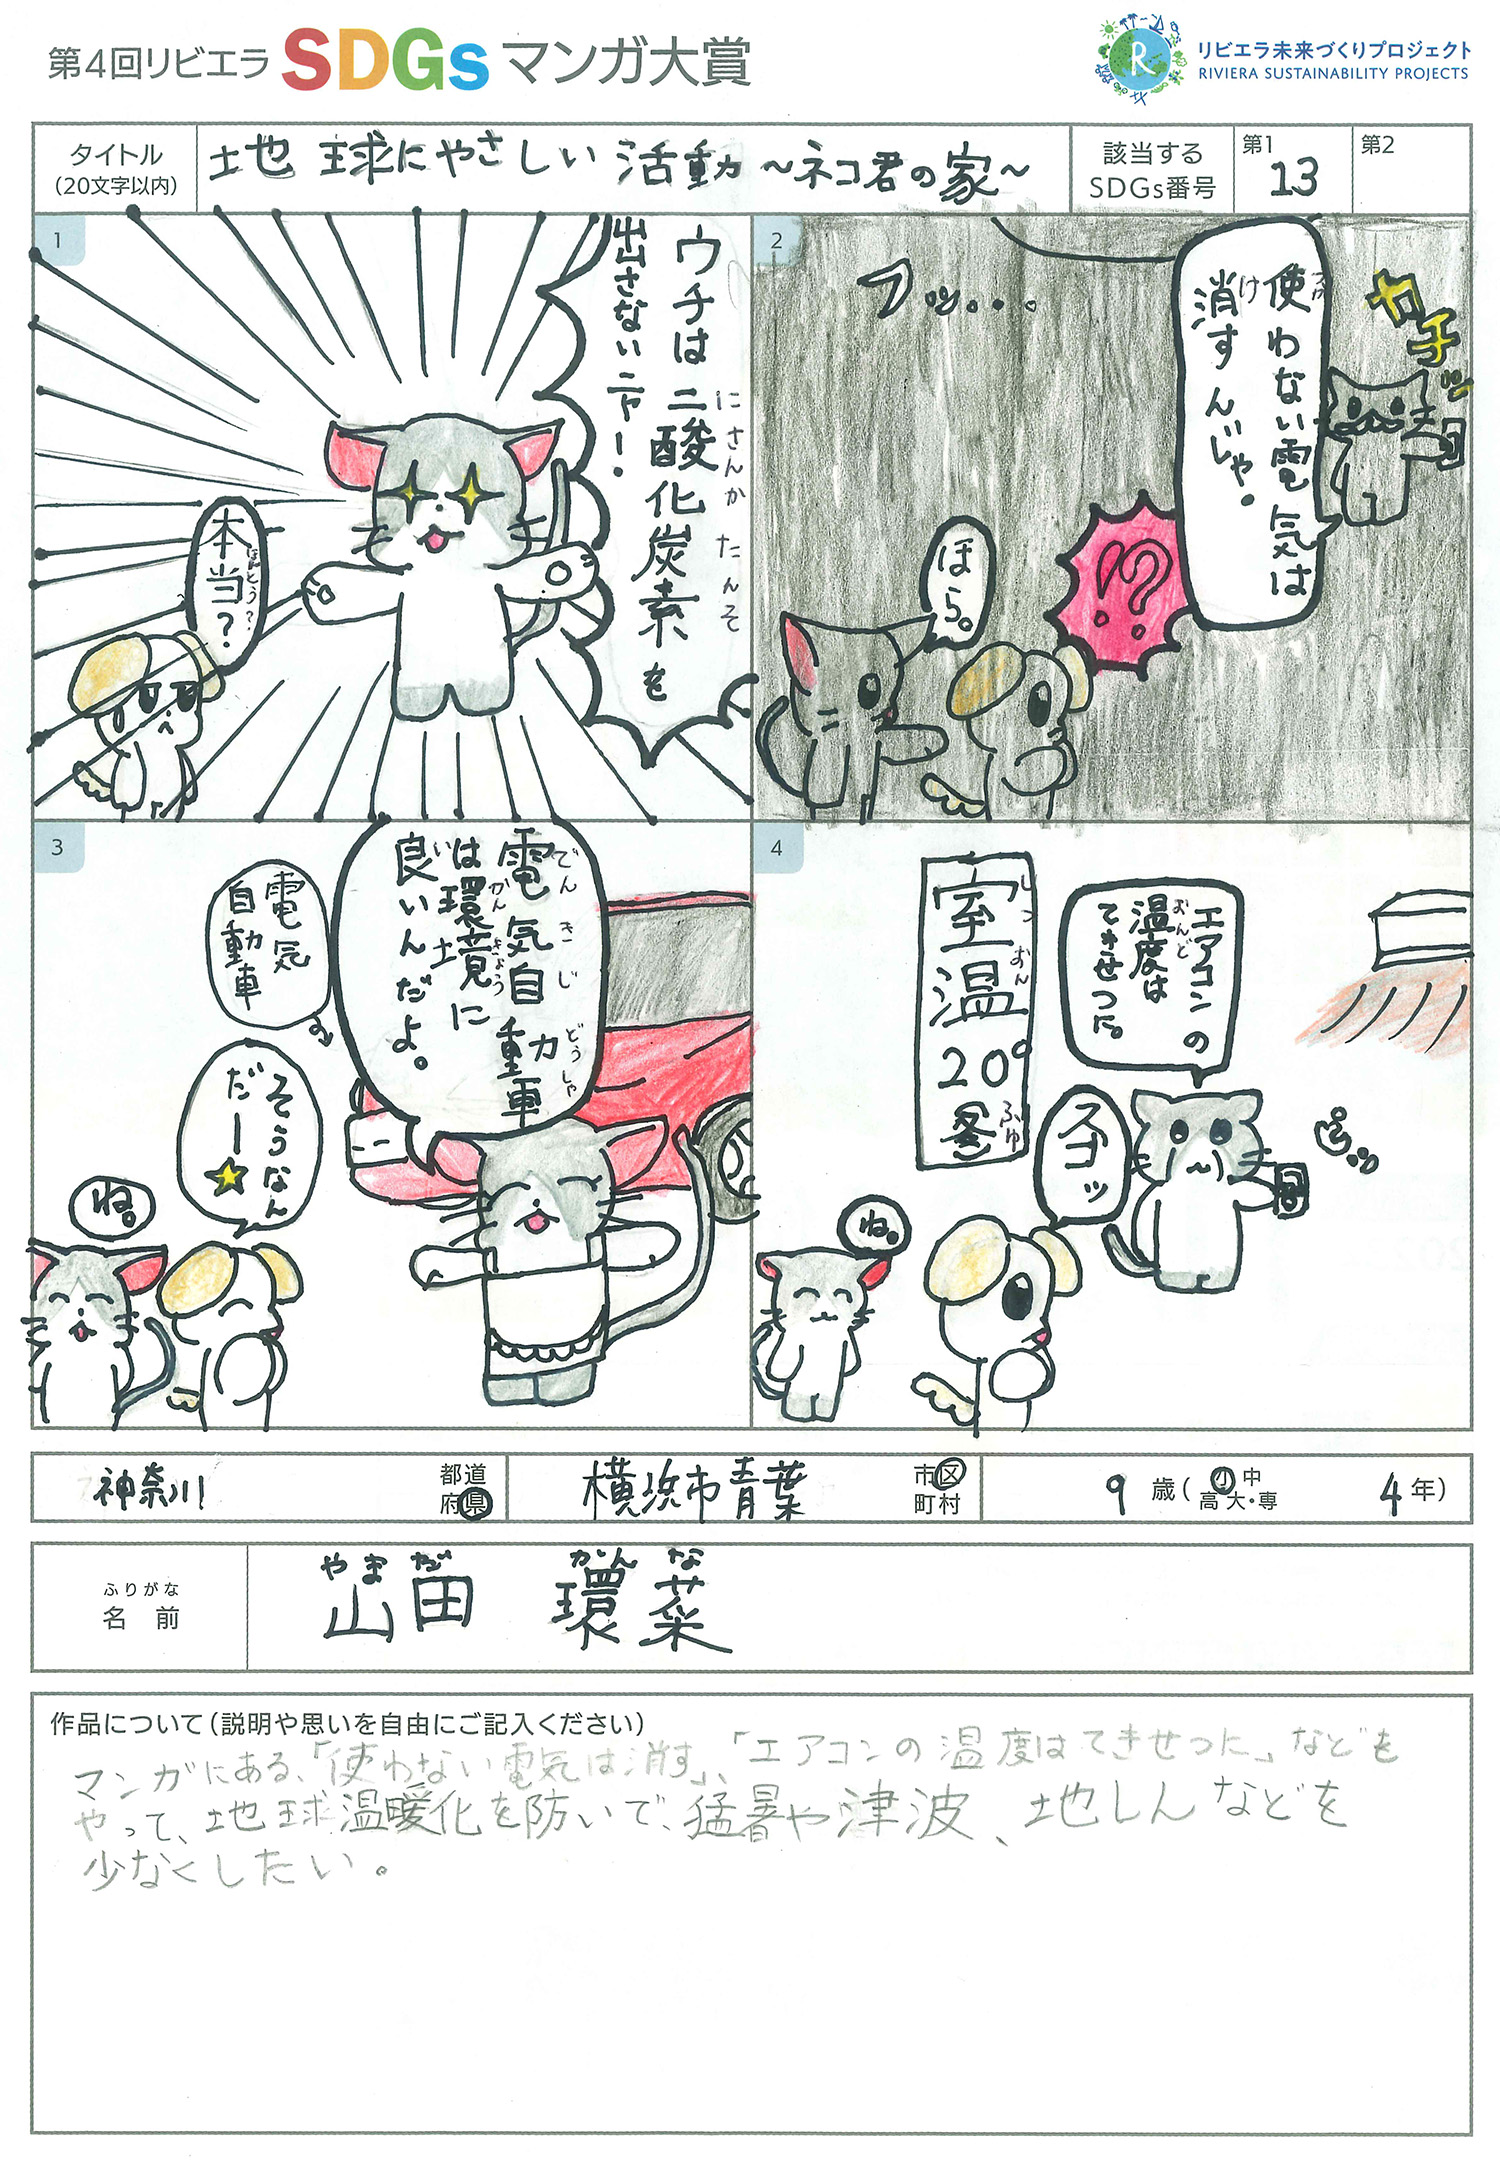 第4回リビエラ SDGs マンガ大賞
R
リビエラ未来づくりプロジェクト
RIVIERA SUSTAINABILITY PROJECTS
タイトル
(20文字以内)
地球にやさしい活動 ~ネコ君の家~
該当する
SDGs番号
第1
13
第2
1
ウチは二酸化炭素を
にさんかたんそ
出さないニャー!
本当?
ほんとう?
2
使わない電気は
つか
消すんじゃ。
け
カチッ
フッ...。
!?
ほら。
3
電気自動車
でんきじどうしゃ
は環境に
かんきょう
良いんだよ。
い
電気
自動車
そうなん
だー
ね。
4
エアコンの
温度は
おんど
てきせつに。
室温20°冬
しつおん ふゆ
スゴッ
ピッ
ね。
神奈川
都道
府県
横浜市青葉
市区
町村
9 歳(小 中
高 大・専
4 年)
ふりがな
名 前
やまだ かんな
山田 環菜
作品について(説明や思いを自由にご記入ください)
マンガにある、「使わない電気は消す」、「エアコンの温度はてきせつに」なども
やって、地球温暖化を防いで、猛暑や津波、地しんなどを
少なくしたい。